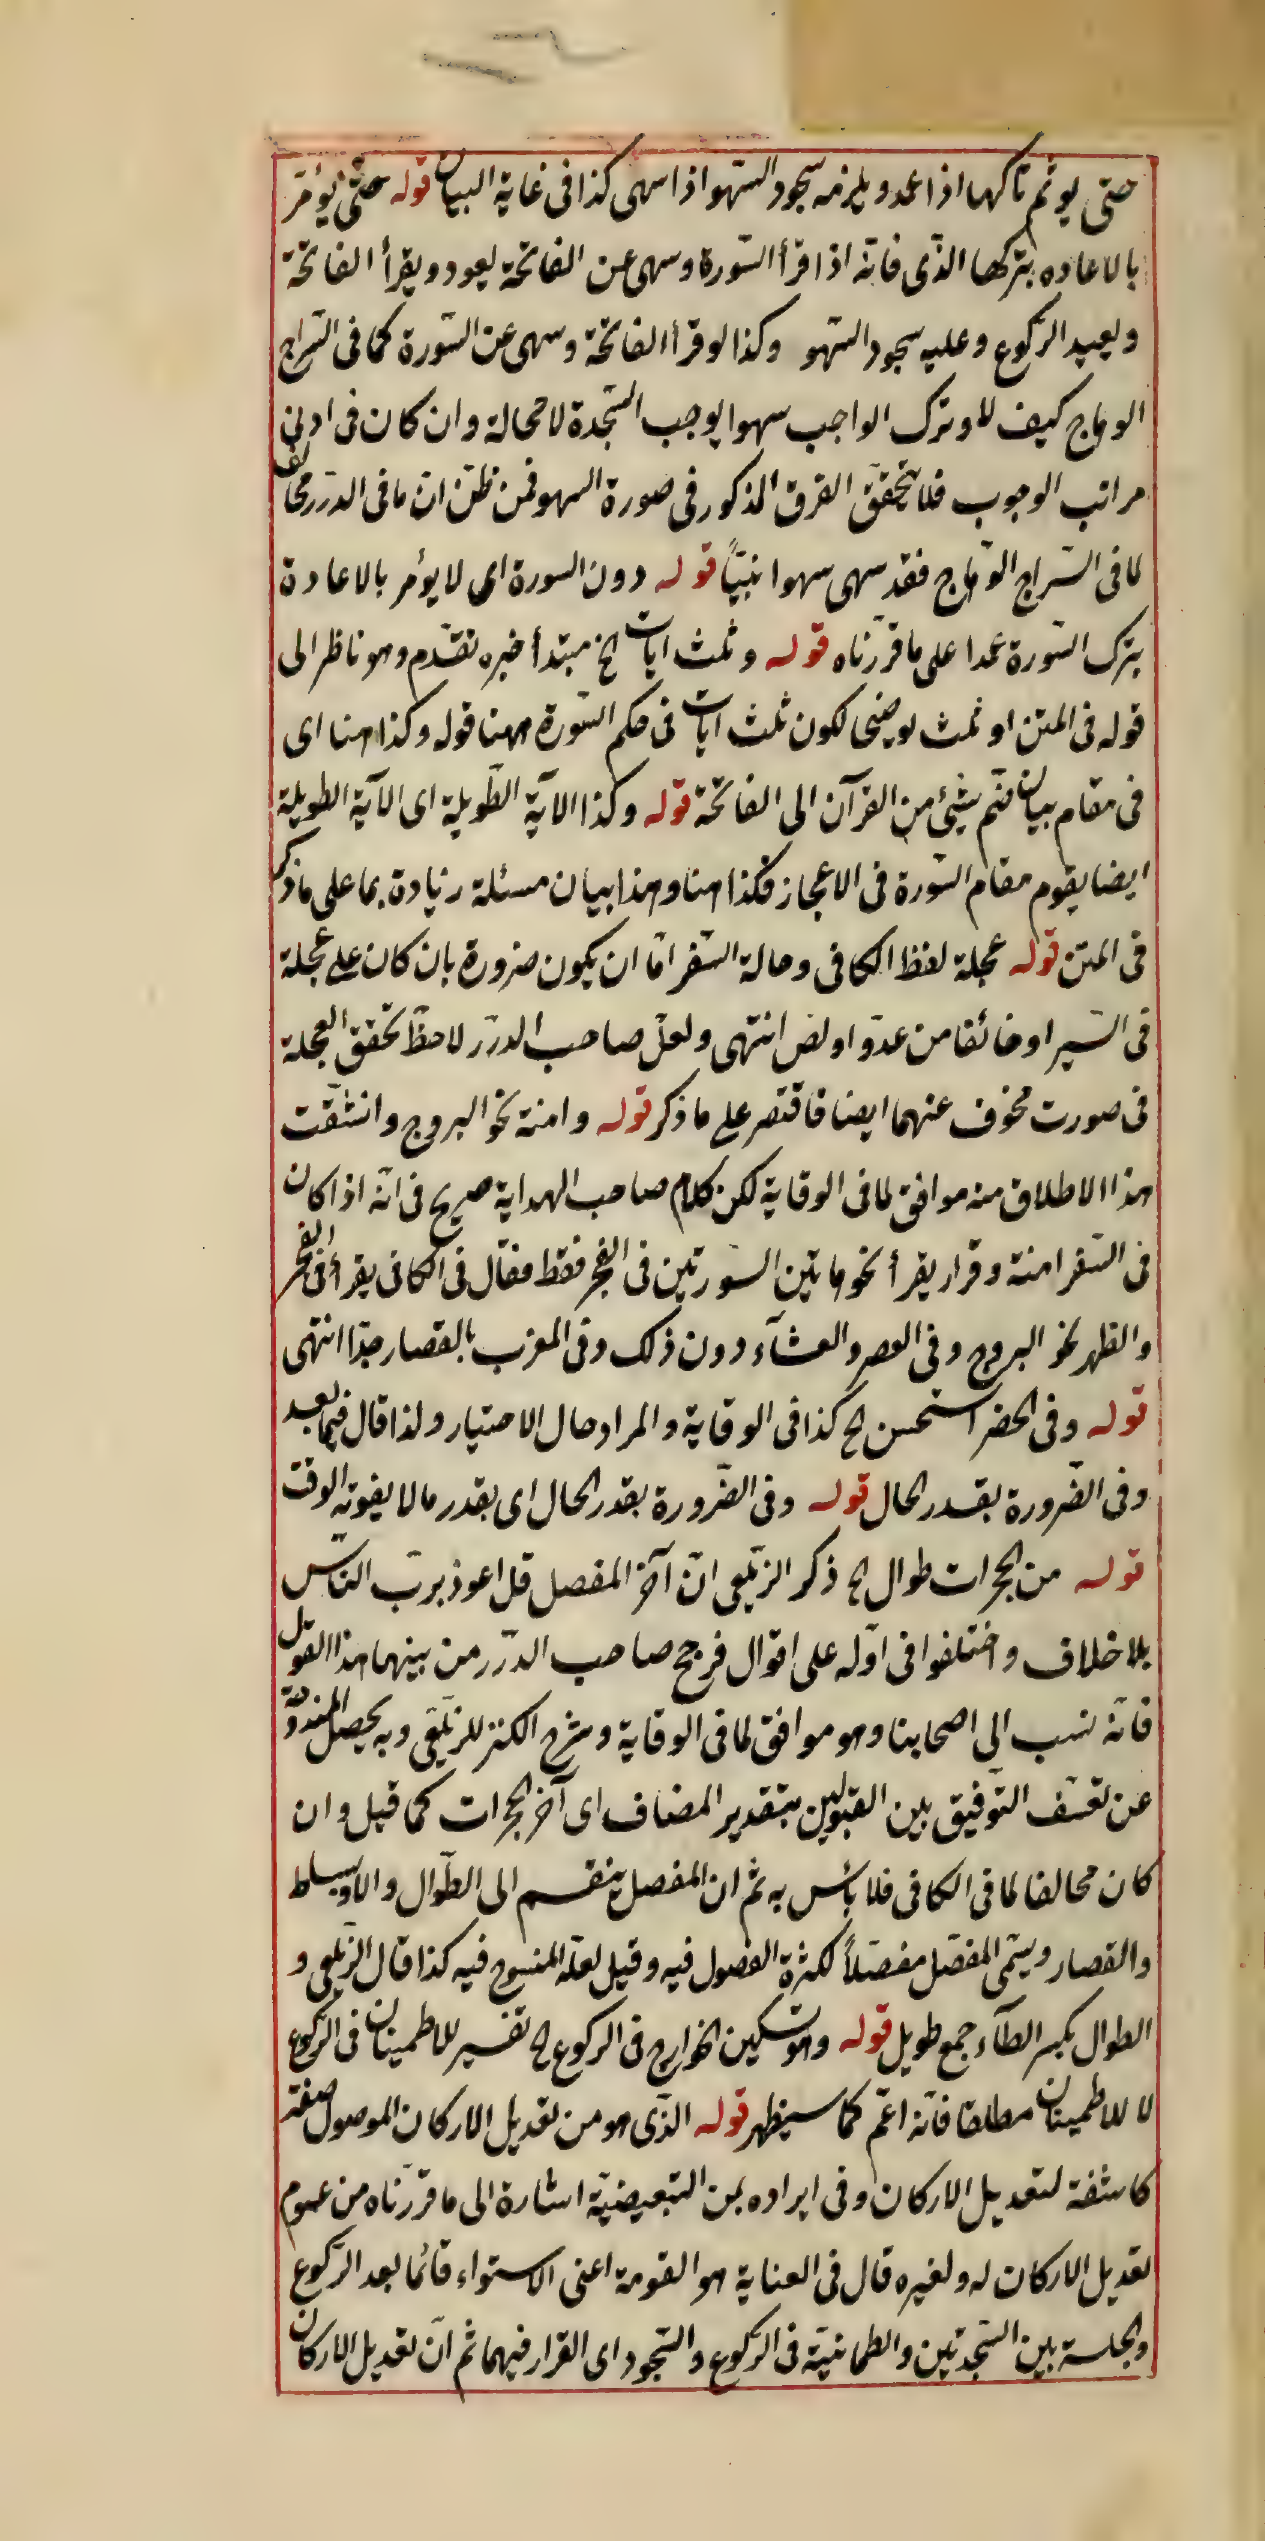 حتى يوثم تاركها اذا عمد ويلزمه سجود السّهو اذا سهى كذا فى غاية البيان قوله حتّى يؤمر
بالاعاده بتركها الذّى فانّه اذا قرأ السّورة وسهى عن الفاتحة يعود ويقرأ الفاتحة
ويعيد الرّكوع وعليه سجود السّهو وكذا لو قرأ الفاتحة وسهى عن السّورة كما فى السّراج
الوهاج كيف لا وترك الواجب سهوا يوجب السّجدة لا محالة وان كان فى ادنى
مراتب الوجوب فلا يتحقّق الفرق المذكور فى صورة السهو فمن ظنّ انّ ما فى الدّرر مخالف
لما فى السّراج الوّهاج فقد سهى سهوا بيّنًا قوله دون السورة اى لا يؤمر بالاعادة
بترك السّورة عمدا على ما قرّرناه قوله وثلث ايات الخ مبتدأ خبره تقدّم وهو ناظر الى
قوله فى المتن او ثلث يوضحى لكون ثلث ايات فى حكم السّورة ههنا قوله وكذا هنا اى
فى مقام بيان ضمّ شيئ من القرآن الى الفاتحة قوله وكذا الآيّة الطّويلة اى الآيّة الطويلة
ايضا يقوم مقام السّورة فى الاعجاز فكذا هنا وهذا بيان مسئلة زيادة بما على ما ذكر
فى المتن قوله عجلة لفظ الكافى وحالة السّفر امّا ان يكون ضرورة بان كان على عجلة
فى السّير او خائفا من عدوّ او لصّ انتهى ولعلّ صاحب الدرّر لاحظ تحقّق العجلة
فى صورت مخوف عنهما ايضا فاقتصر على ما ذكر قوله وامنة نحو البروج وانشقّت
هذا الاطلاق منه موافق لما فى الوقاية لكن كلام صاحب الهداية صريح فى انّه اذا كان
فى السّفر امنة وقرار يقرأ نحو هاتين السّورتين فى الفجر فقط فقال فى الكافى يقرأ فى الفجر
والظهر نحو البروج وفى العصر والعشآء دون ذلك وفى المغرب بالقصار جدّا انتهى
قوله وفى الحضر استحسن الخ كذا فى الوقاية والمراد حال الاختيار ولذا قال فيما بعد
وفى الضّرورة بقدر الحال قوله وفى الضّرورة بقدر الحال اى بقدر ما لا يفوته الوقت
قوله من الحجرات طوال الخ ذكر الزّيلعى انّ آخر المفصل قل اعوذ بربّ النّاس
بلا خلاف واختلفوا فى اوّله على اقوال فرجح صاحب الدّرر من بينهما هذا القول
فانّه نسب الى اصحابنا وهو موافق لما فى الوقاية وشرح الكنز للزّيلعى وبه يحصل المندوحة
عن تعسّف التّوفيق بين القولين بتقدير المضاف اى آخر الحجرات كما قيل وان
كان مخالفا لما فى الكافى فلا بائس به ثم ان المفصل ينقسم الى الطّوال والاوسط
والقصار ويسمّى المفصّل مفصّلاً لكثرة الفصول فيه وقيل لقلّة المنسوخ فيه كذا قال الزّيلعى و
الطوال بكسر الطآء جمع طويل قوله وهو تسكين الجوارح فى الركوع الخ تفسير للاطمينان فى الركوع
لا للاطمينان مطلقا فانّه اعمّ كما سيظهر قوله الذّى هو من تعديل الاركان الموصول صفة
كاشفة لتعديل الاركان وفى ايراده بمن التّبعيضيّة اشارة الى ما قرّرناه من عموم
تعديل الاركان له ولغيره قال فى العناية هو القومة اعنى الاستواء قائما بعد الرّكوع
والجلسة بين السّجدتين والطمانيّة فى الرّكوع والسّجود اى القرار فيهما ثم انّ تعديل الاركان